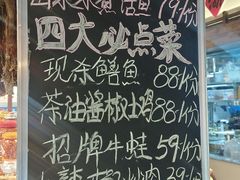 活鱼 79/份
四大必点菜
现杀鳝鱼 88/份
茶油酱椒土鸡 88/份
招牌牛蛙 59/份